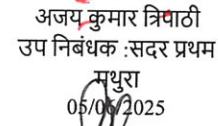 अजय कुमार त्रिपाठी
उप निबंधक :सदर प्रथम
मथुरा
05/06/2025